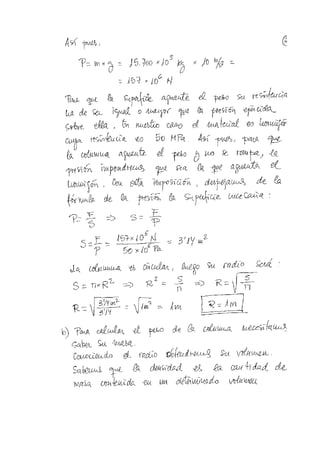 Así pues,
P = m × g = 15.700 × 10³ kg × 10 m/s² =
= 157 × 10⁶ N
Para que la superficie aguante el peso su resistencia
ha de ser igual o mayor que la presión ejercida
sobre ella. En nuestro caso el material es hormigón
cuya resistencia es 50 MPa Así pues, para que
la columna aguante el peso y no se rompa, la
presión impondremos que sea la que aguanta el
hormigón. Con esta imposición, despejamos de la
fórmula de la presión la superficie necesaria:
P = F/S => S = F/P
S = F/P = 157×10⁶ N / 50×10⁶ Pa = 3'14 m²
La columna es circular, luego su radio será:
S = π×R² => R² = S/π => R = √(S/π)
R = √(3'14 m²/3'14) = √1m² = 1m R = 1m
b) Para calcular el peso de la columna necesitamos
saber su masa.
Conociendo el radio obtendremos su volumen.
Sabemos que la densidad es la cantidad de
masa contenida en un determinado volumen